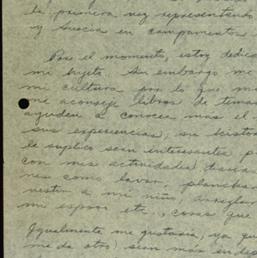 la primera vez representando
y buscia en campamentos
Por el momento, estoy dedica
mi hijito. Sin embargo me
mi cultura por lo que me
me aconseje libros de temas
ayuden a conocer más el
sus experiencias, su histor
le suplico sean interesantes p
con mis actividades diarias
nes como lavar, planchar
vestir a mi niño, arreglar
mi esposo etc., cosas que
Igualmente me gustaría, ya que
me da otro) sean más en dep